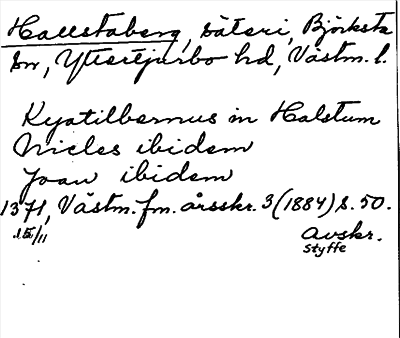 Hallstaberg, säteri, Björksta
sn, Yttertjurbo hd, Västm. l.
Kyatilbernus in Halstum
Nicles ibidem
Joan ibidem
1371, Västm. fm. årsskr. 3 (1884) s. 50.
Avskr.
Styffe